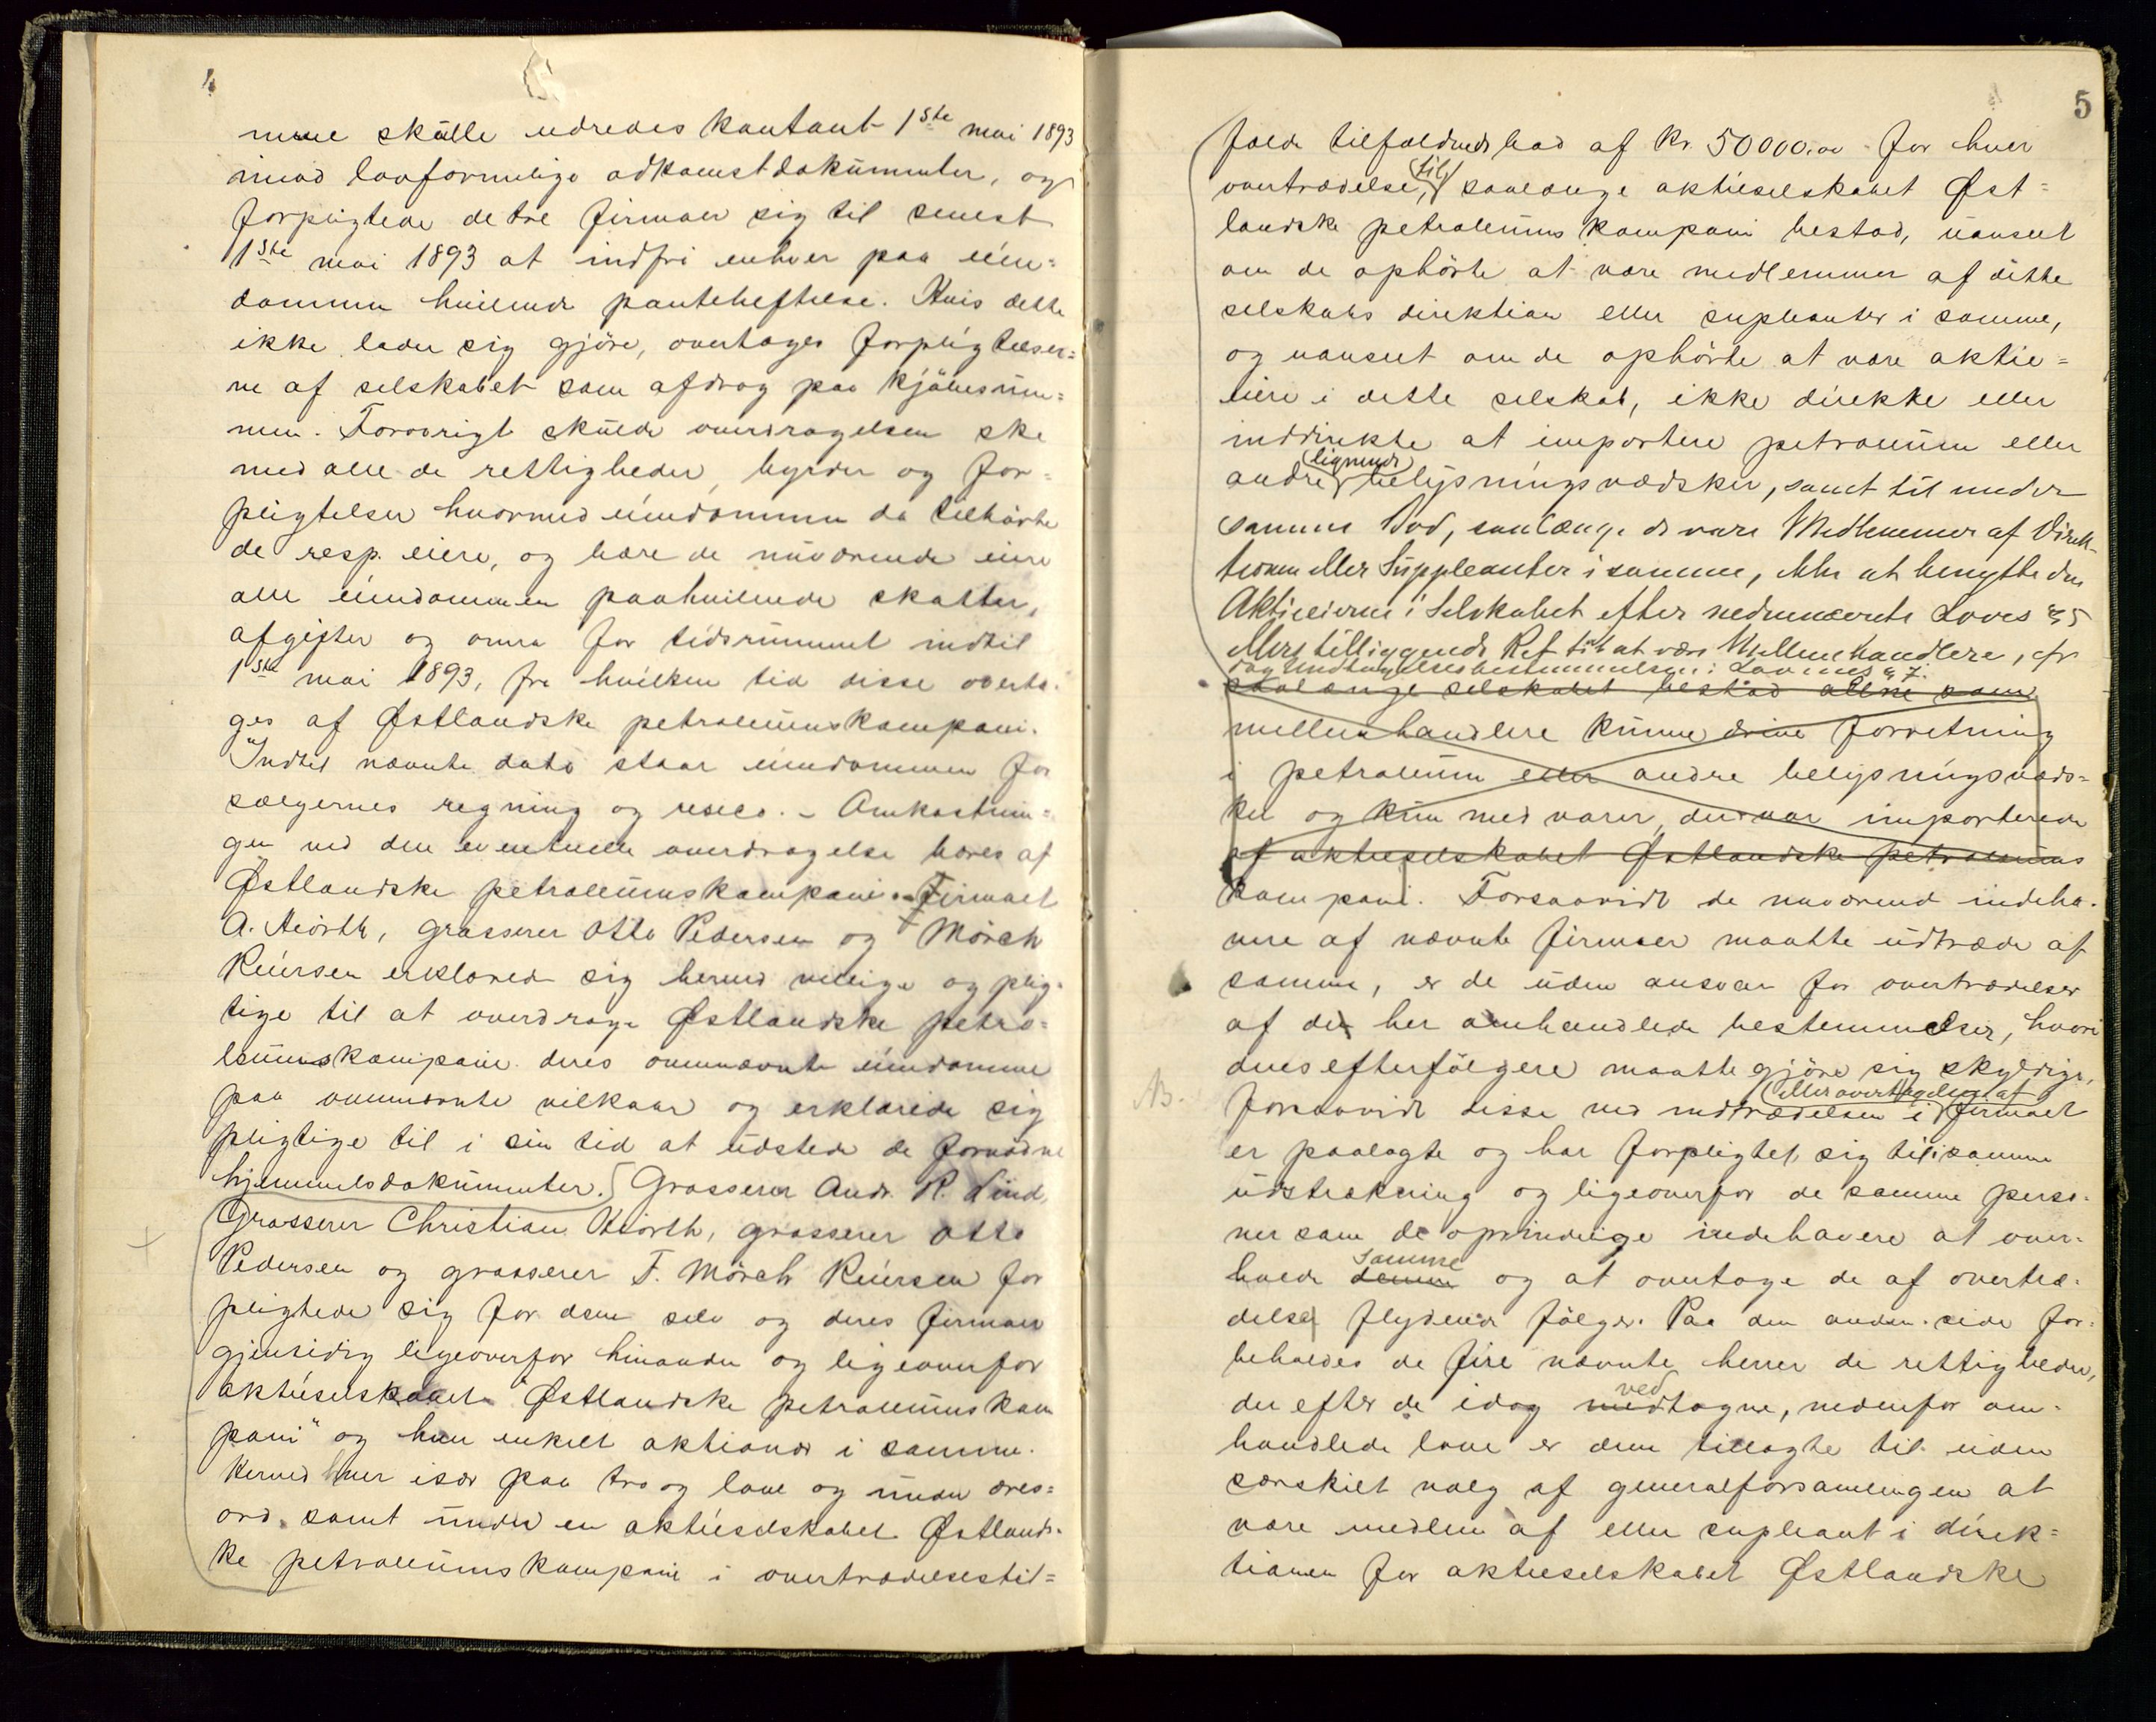 mene skulle udredes kontant 1ste mai 1893
mod lovformelige adkomstdokumenter, og
forpligtede de tre firmaer sig til senest
1ste mai 1893 at indfri enhver paa eien=
dommen hvilende pantehæftelse. Hvis dette
ikke lader sig gjöre, overtages forpligtelser=
ne af selskabet som afdrag paa kjöbesum=
men. Forövrigt skulde overdragelsen ske
med alle de rettigheder, byrder og for=
pligtelser hvormed eiendommen da tilhörte
de resp. eiere, og bære de nuværende eiere
alle eiendommen paahvilende skatter,
afgifter og onera for tidsrummet indtil
1ste mai 1893, fra hvilken tid disse overta=
ges af Østlandske petroleumskompani.
Indtil nævnte dato staar eiendommen for
sælgernes regning og risico. - Omkostnin=
ger ved den eventuelle overdragelse bæres af
Østlandske petroleumskompani. - Firmaet
A. Hiorth, grosserer Otto Pedersen og Mörch
Reiersen erklærede sig herved villige og plig=
tige til at overdrage Østlandske petro=
leumskompani deres ovennævnte eiendomme
paa ovennævnte vilkaar og erklærede sig
pligtige til i sin tid at udstede de fornødne
hjemmelsdokumenter. Grosserer Andr. R. Lind,
Grosserer Christian Hiorth, grosserer Otto
Pedersen og grosserer F. Mörch Reiersen for
pligtede sig for dem selv og deres firmaer
gjensidig ligeoverfor hinanden og ligeoverfor
aktieselskabet "Østlandske petroleumskom
pani" og hver enkelt aktionær i samme
herved hver især paa tro og love og under æres=
ord samt under en aktieselskabet Østlands=
ke petroleumskompani i overtrædelsestil=
5
fælde tilfaldende bod af Kr. 50000.00 for hver
overtrædelse, til saalænge aktieselskabet Øst=
landske petroleums kompani bestod, uanseet
om de ophörte at være medlemmer af dette
selskabs direktion eller supleanter i samme,
og uanseet om de ophörte at være aktie=
eiere i dette selskab, ikke direkte eller
inddirekte at importere petroleum eller
andre lignende belysningsvædsker, samt til under
samme Bod, saalænge de vare Medlemmer af Direk-
tionen eller Suppleanter i samme, ikke at benytte den
Aktieeierne i Selskabet efter nedennævnte Loves § 5
ellers tilliggende Ret til at være Mellemhandlere, cfr
dog Undtagelsesbestemmelsen i Lovenes § 7.
saalænge selskabet bestod allene som
mellemhandlere kunne drive forretning
i petroleum eller andre belysningsvæds=
ker og kun med varer, der var importerede
af aktieselskabet Østlandske petroleums
kompani. Forsaavidt de nuværende indeha=
vere af nævnte firmaer maatte udtræde af
samme, er de uden ansvar for overtrædelser
af de her omhandlede bestemmelser, hvori
deres efterfölgere maatte gjöre sig skyldige,
forsaavidt disse ved indtrædelsen i eller overtagelsen af firmaet
er paalagte og har forpligtet sig til i samme
udstrækning og ligeoverfor de samme perso=
ner som de oprindelige indehavere at over=
holde denne samme og at overtage de af overtræ=
delser flydende fölger. Paa den anden side for=
beholdes de fire nævnte herrer de rettigheder,
der efter de idag vedtagne, nedenfor om=
handlede love er dem tillagte til uden
særskilt valg af generalforsamlingen at
være medlem af eller supleant i direk=
tionen for aktieselskabet Østlandske